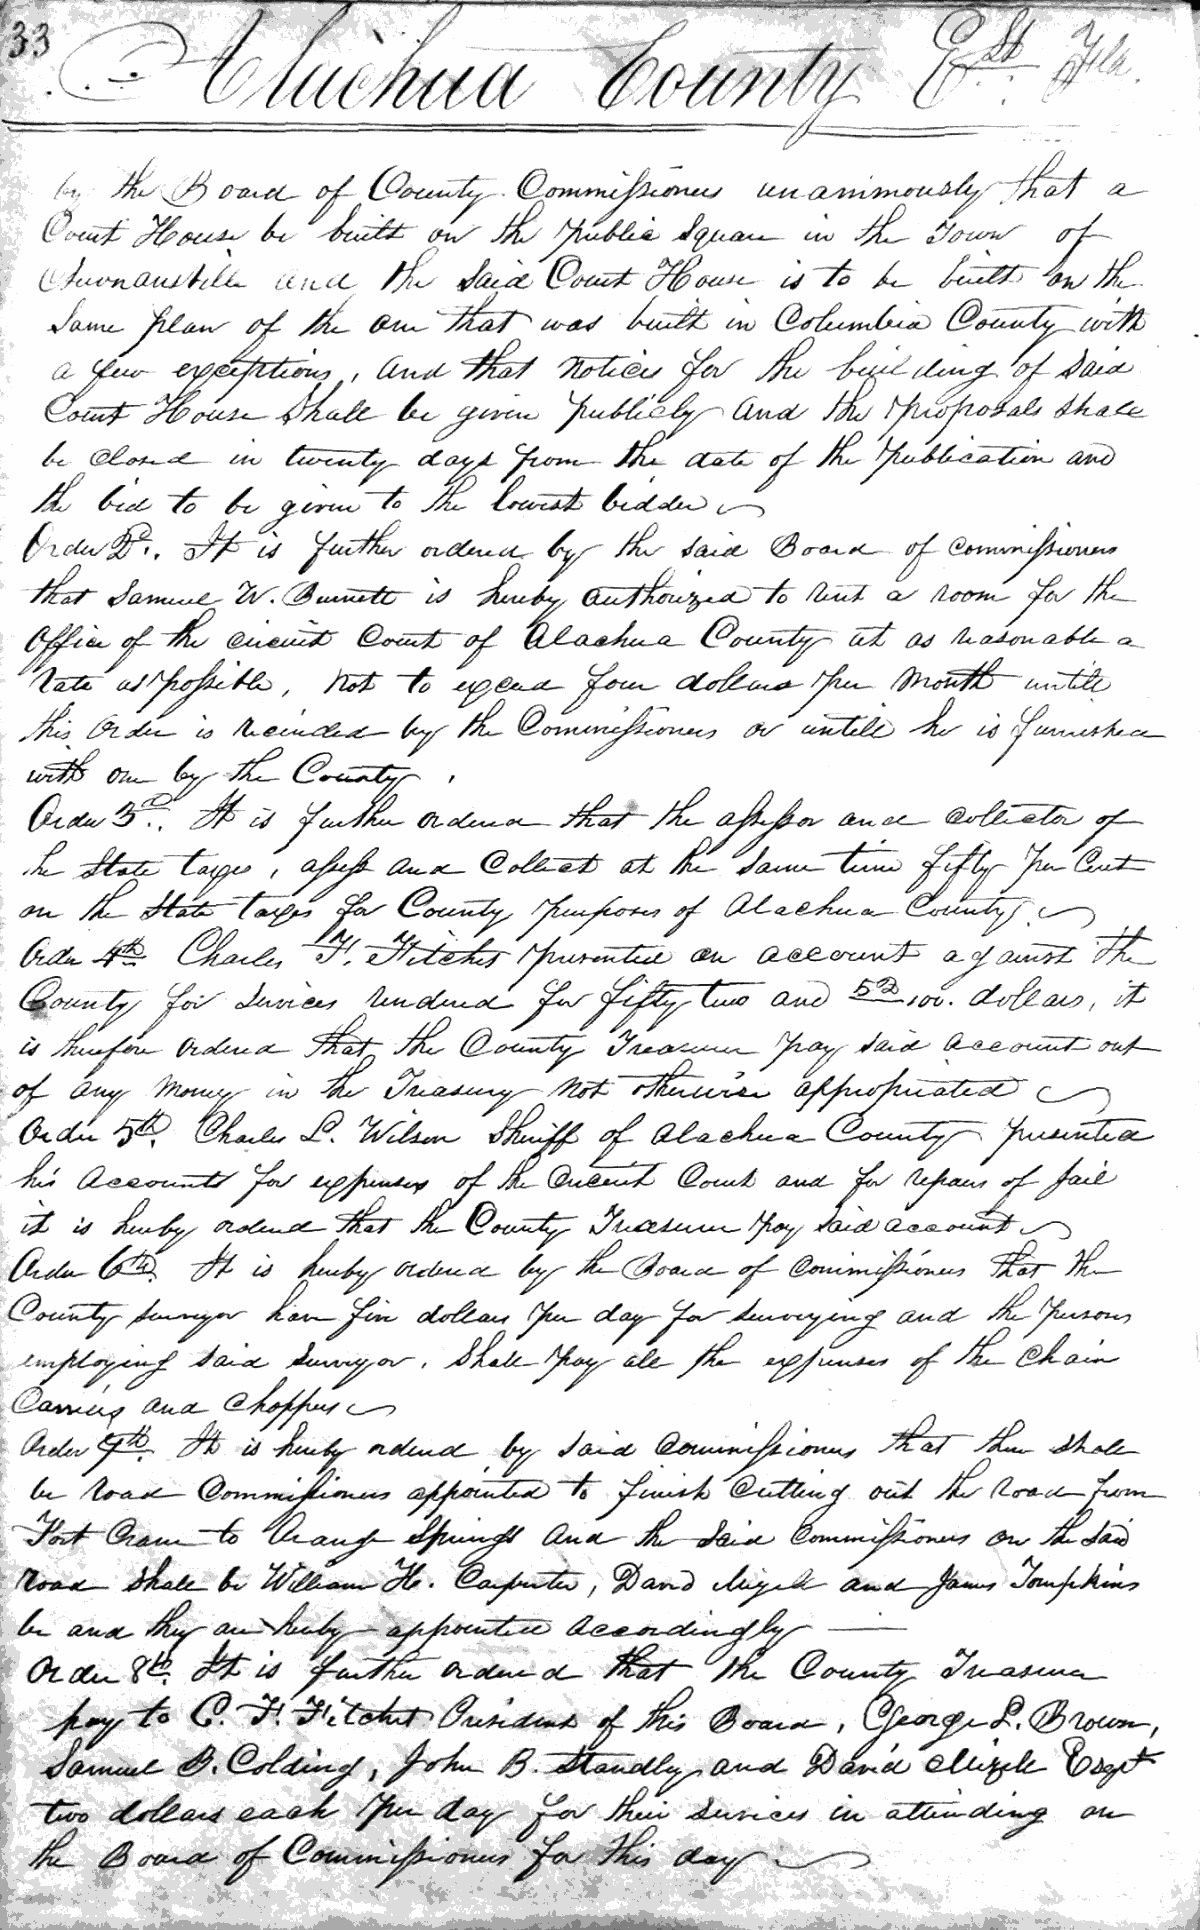 33
Alachua County Est. Fla.
by the Board of County Commissioners unanimously that a
Court House be built on the public square in the Town of
Newnansville and the said Court House is to be built on the
same plan of the one that was built in Columbia County with
a few exceptions, and that notices for the building of said
Court House shall be given publicly and the proposals shall
be closed in twenty days from the date of the publication and
the bid to be given to the lowest bidder
Order 2d.. It is further ordered by the said Board of commissioners
that Samuel W. Burnett is hereby authorized to rent a room for the
office of the circuit Court of Alachua County at as reasonable a
rate as possible, not to exceed four dollars per month untill
this order is recinded by the Commissioners or untill he is furnished
with one by the County.
Order 3d.. It is further ordered that the assessor and collector of
he State taxes, assess and Collect at the same time fifty per Cent
on the State taxes for County purposes of Alachua County
Order 4th Charles F. Fitchet presented an account against the
County for services rendered for fifty two and 50/100. dollars, it
is therefore ordered that the County Treasurer pay said account out
of any money in the Treasury not otherwise appropriated
Order 5th. Charles L. Wilson Sheriff of Alachua County presented
his accounts for expenses of the Circuit Court and for repairs of jail
it is hereby ordered that the County Treasurer pay said account
Order 6th. It is hereby ordered by the Board of commissioners that the
County surveyor have five dollars per day for surveying and the persons
employing said surveyor. Shall pay all the expenses of the chain
Carriers and choppers
Order 7th. It is hereby ordered by said Commissioners that there shall
be road Commissioners appointed to finish Cutting out the road from
Fort Crane to Orange Springs and the said Commissioners on the said
road shall be William H. Carpenter, David Mizell and James Tompkins
be and they are hereby appointed accordingly
Order 8th. It is further ordered that the County Treasurer
pay to C. F. Fitchet President of this Board, George L. Brown,
Samuel B. Colding, John B. Standly and David Mizele Esqr
two dollars each per day for their services in attending on
the Board of Commissioners for this day